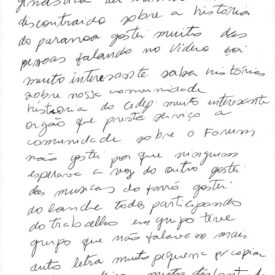 descontraido sobre a história
do paranoa gostei muito das
pessoas falando no video foi
muito interesante saber histórias
sobre nossa comunidade
historia do cedep muito interesante
orgão que presta serviço a
comunidade sobre o Forum
não gostei por que ninguem
esperava a vez do outro gostei
das musicas do forró gostei
do lanche todos participando
do trabalho em grupo teve
grupo que não falava mais
outo letra muito pequena p/ copiar
muito